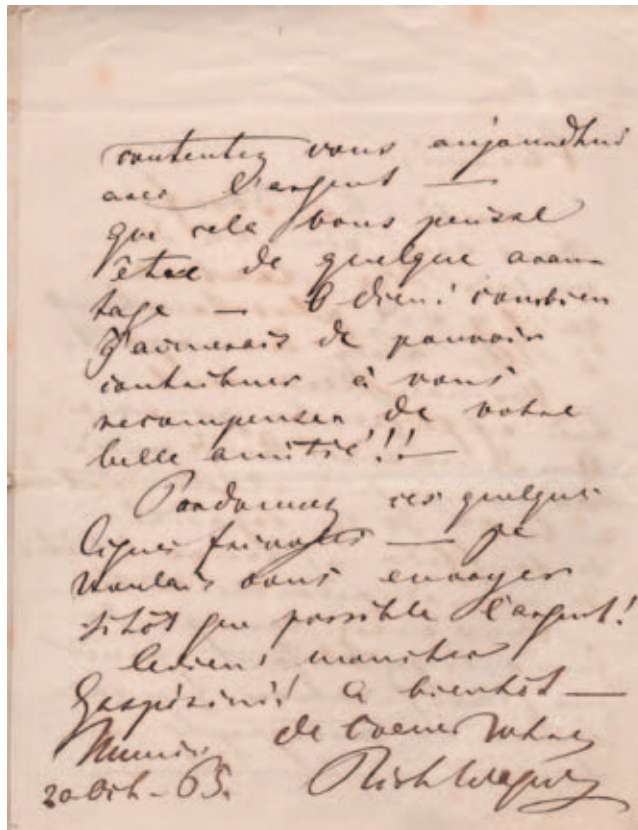 contentez vous aujourdhui
avec l'argent —
que cela vous puisse
être de quelque avan-
tage — O dieu! combien
j'aimerais de pouvoir
contribuer à vous
recompenser de votre
belle amitié!!!—
Pardonnez ces quelques
lignes frivoles — je
voulais vous envoyer
sitôt que possible l'argent!
Adieu! mon cher
Gaspérini! A bientôt —
de coeur votre
Munic
20 Oct. 65. Rich Wagner